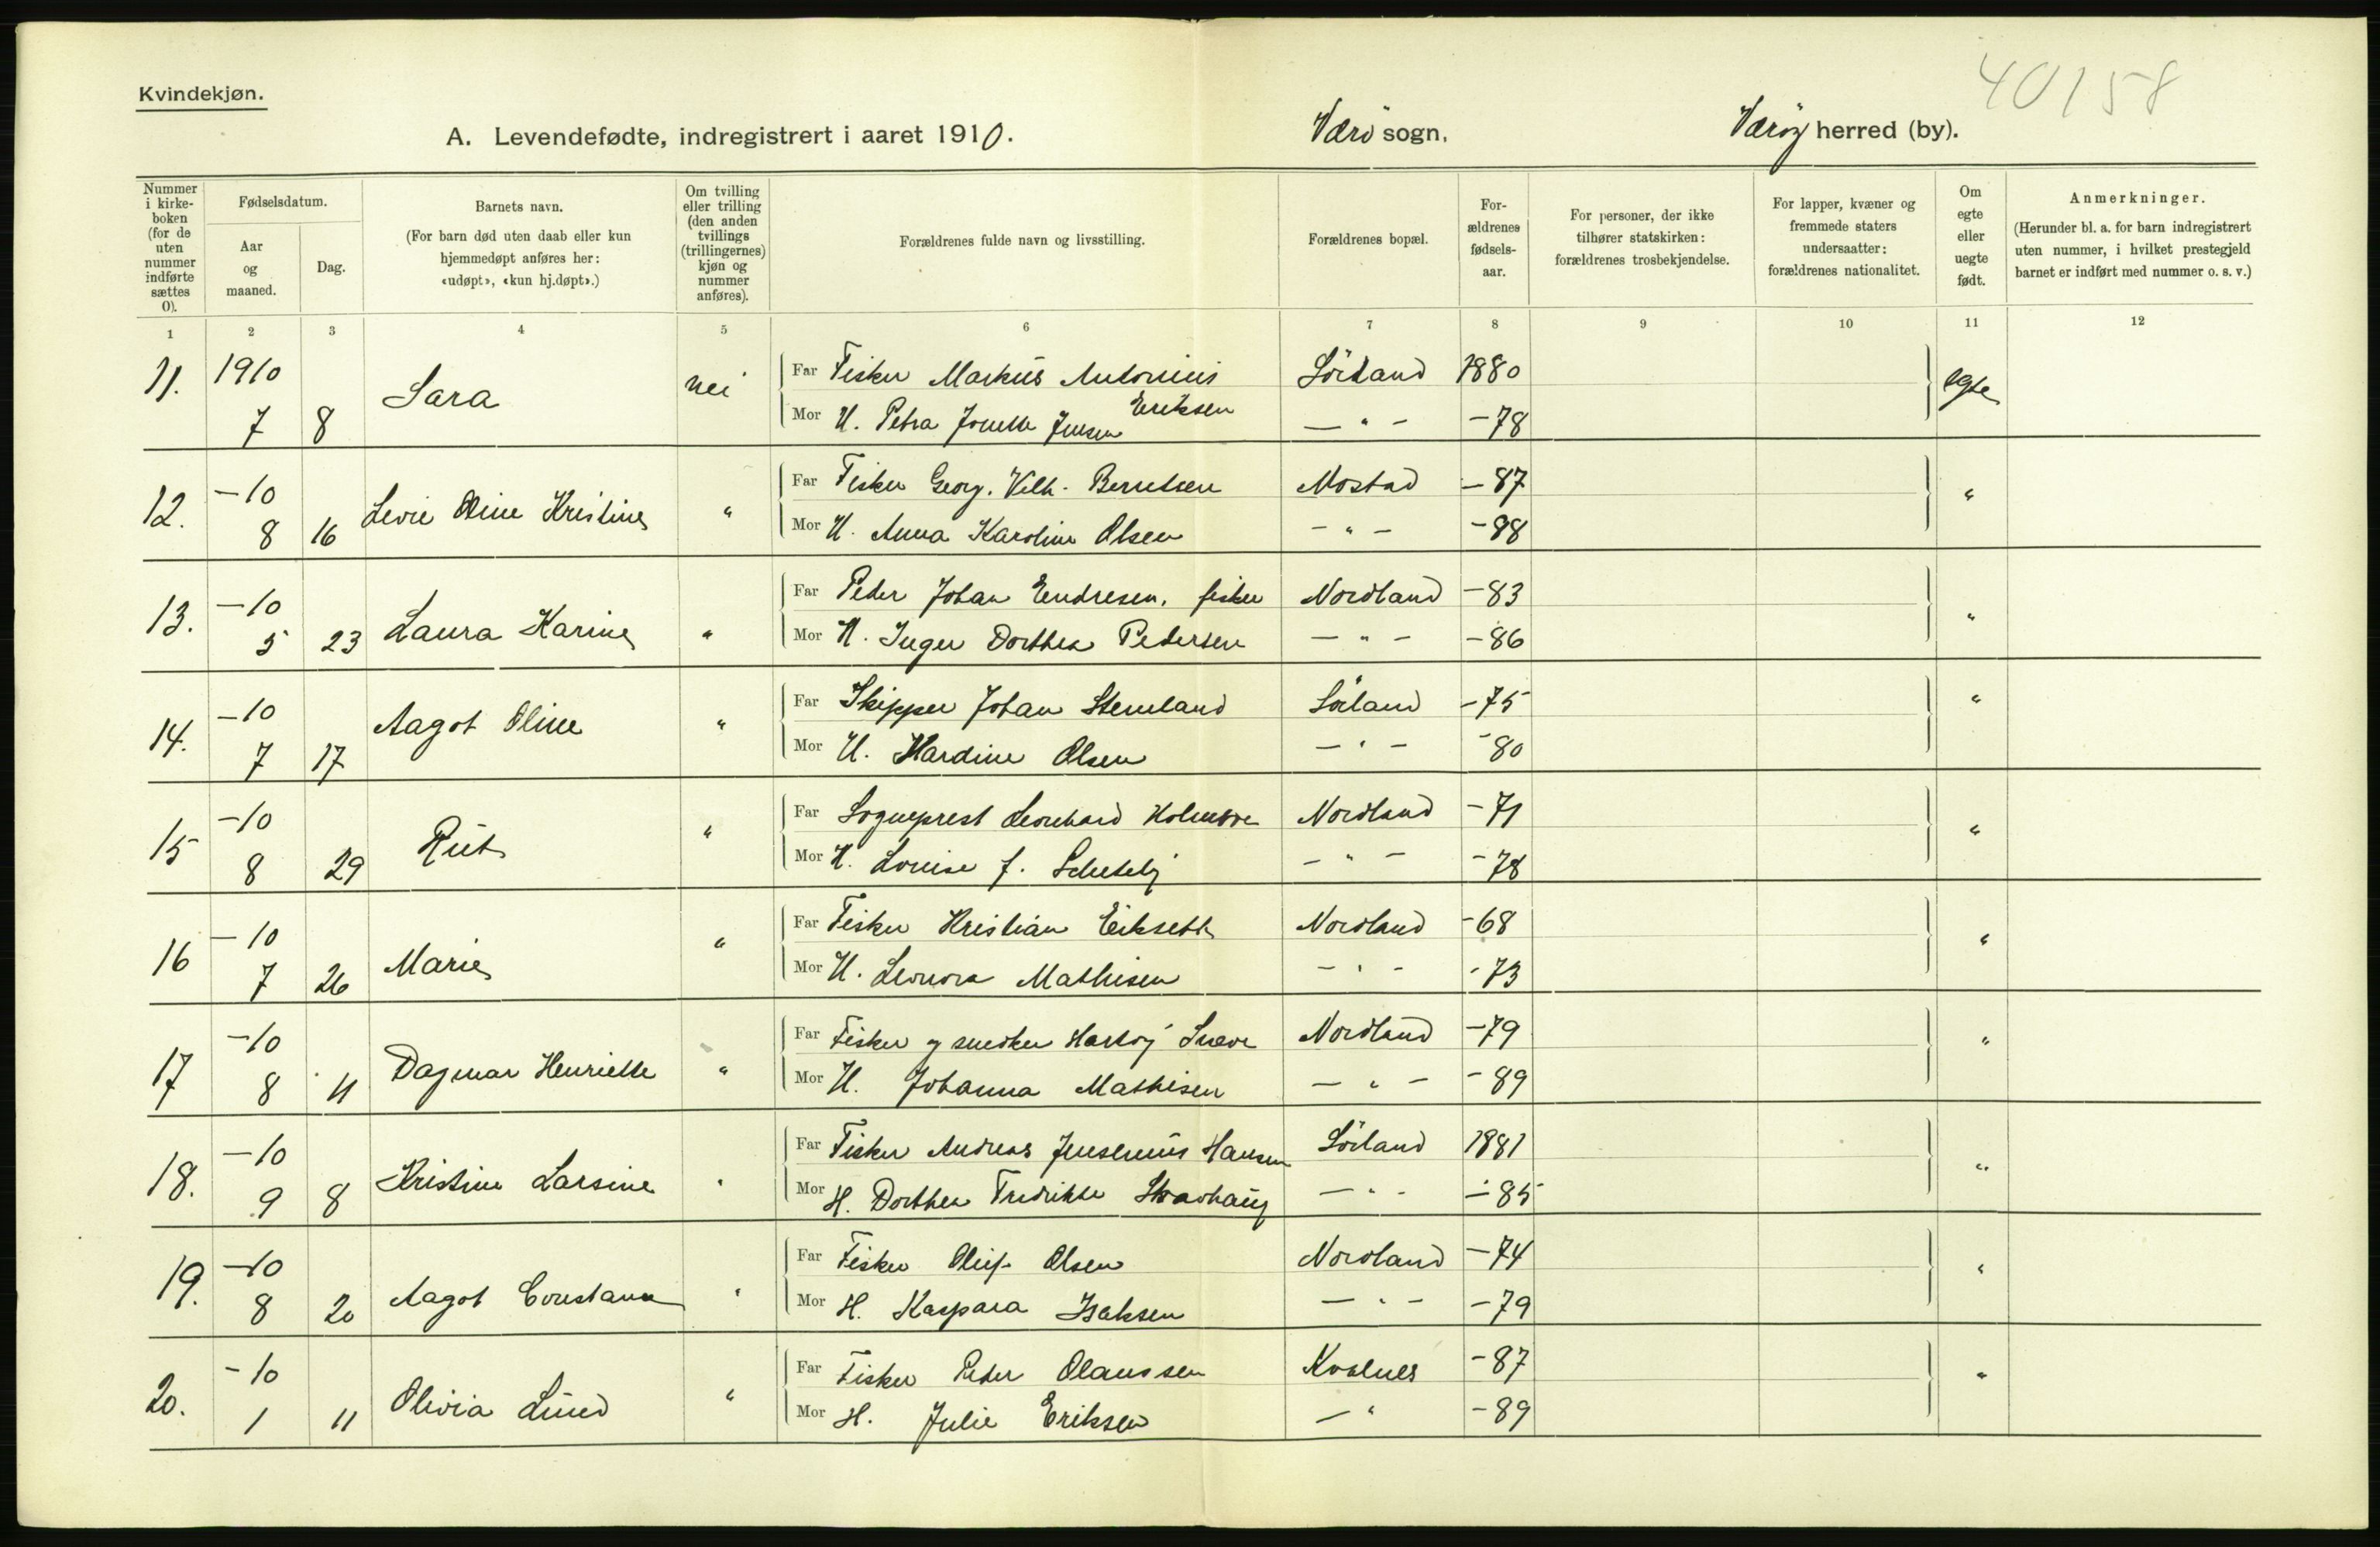 40158
Kvindekjøn.
A. Levendefødte, indregistrert i aaret 1910. Værö sogn, Værøy herred (by).
Nummer i kirke-boken (for de uten nummer indførte sættes 0).
Fødselsdatum.
Aar og maaned.
Dag.
Barnets navn.
(For barn død uten daab eller kun hjemmedøpt anføres her: «udøpt», «kun hj.døpt».)
Om tvilling eller trilling (den anden tvillings (trillingernes) kjøn og nummer anføres).
Forældrenes fulde navn og livsstilling.
Forældrenes bopæl.
For-ældrenes fødsels-aar.
For personer, der ikke tilhører statskirken: forældrenes trosbekjendelse.
For lapper, kvæner og fremmede staters undersaatter: forældrenes nationalitet.
Om egte eller uegte født.
Anmerkninger.
(Herunder bl. a. for barn indregistrert uten nummer, i hvilket prestegjeld barnet er indført med nummer o. s. v.)
1 2 3 4 5 6 7 8 9 10 11 12
11. 1910 7 8 Sara nei egte
Far Fisker Markus Antonius Eriksen Sörland 1880
Mor H. Petra Jonette Jensen — " - -78
12. -10 8 16 Levie Oline Kristine " "
Far Fisker Georg. Vilh. Berntsen Mostad -87
Mor H. Anna Karoline Olsen - " - -88
13. -10 5 23 Laura Karine " "
Far Peder Johan Endresen, fisker Nordland -83
Mor H. Inger Dorthea Pedersen - " - -86
14. -10 7 17 Aagot Oline " "
Far Skipper Johan Stemland Sörland -75
Mor H. Hardine Olsen - " - -80
15 -10 8 29 Rut " "
Far Sogneprest Leonhard Nordland -71
Mor H. Louise J. - " - -78
16 -10 7 26 Marie " "
Far Fisker Kristian Nordland -68
Mor H. Leonora Mathisen - " - -73
17 -10 8 11 Dagmar Henriette " "
Far Fisker og snedker Hartvig Nordland -79
Mor H. Johanna Mathisen - " - -89
18. -10 9 8 Kristine Larsine " "
Far Fisker Andreas Jensenius Hansen Sörland 1881
Mor H. Dorthea Fredrikke - " - -85
19. -10 8 20 Aagot Constance " "
Far Fisker Oluf Olsen Nordland -74
Mor H. Kaspara Isaksen - " - -79
20. -10 1 11 Olivia Lund " "
Far Fisker Peder Olaussen Kvalnes -87
Mor H. Julie Eriksen - " -89